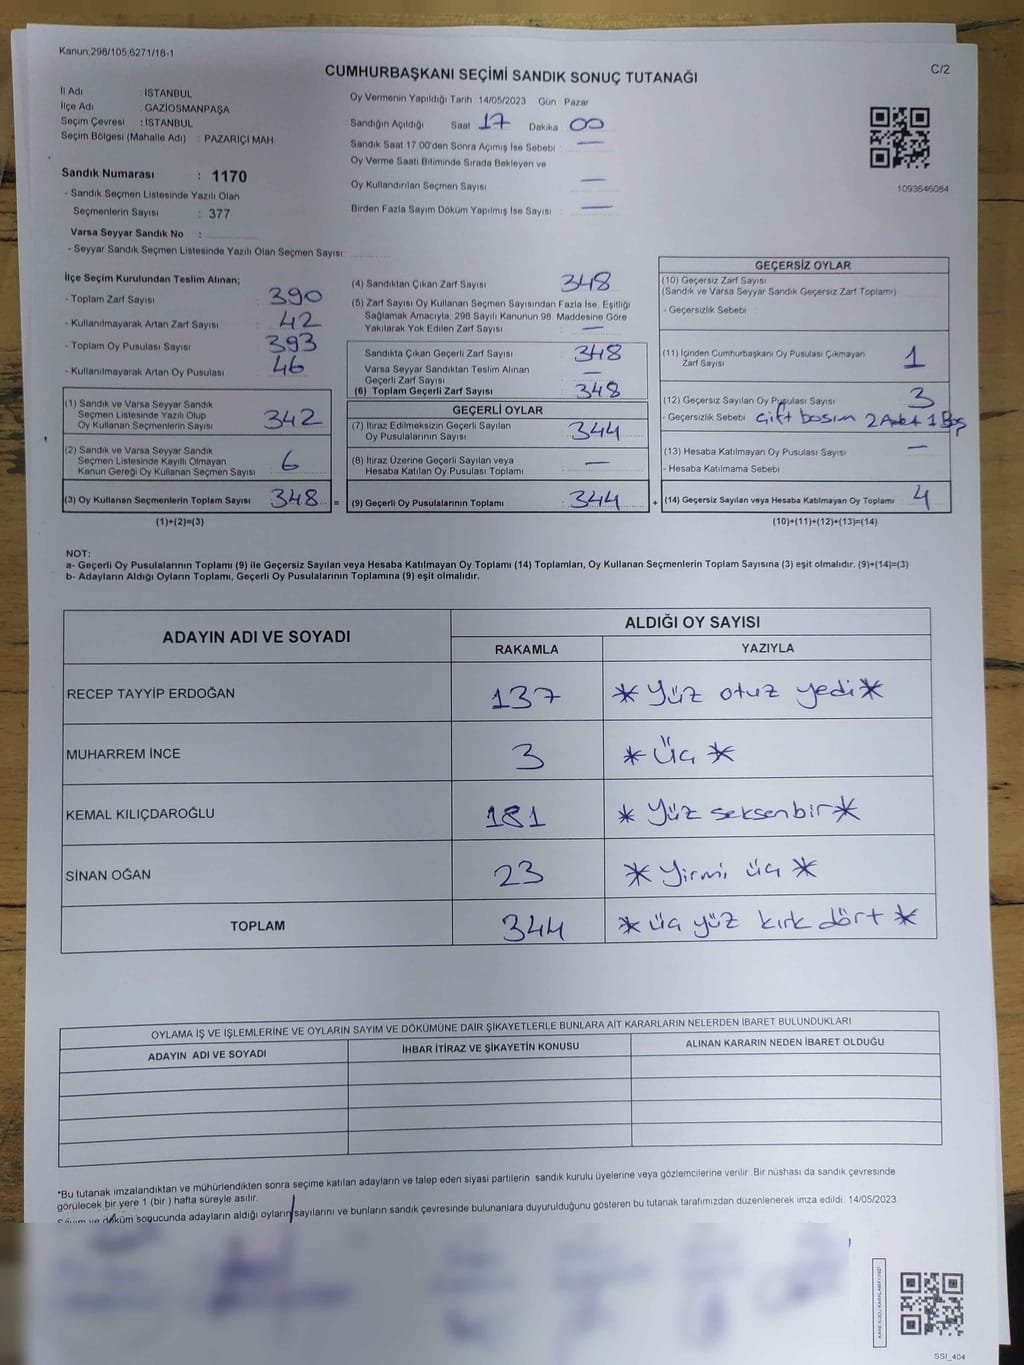 Kanun;298/105,6271/18-1
C/2
CUMHURBAŞKANI SEÇİMİ SANDIK SONUÇ TUTANAĞI
İl Adı : İSTANBUL
İlçe Adı : GAZİOSMANPAŞA
Seçim Çevresi : İSTANBUL
Seçim Bölgesi (Mahalle Adı) : PAZARİÇİ MAH
Sandık Numarası : 1170
- Sandık Seçmen Listesinde Yazılı Olan
Seçmenlerin Sayısı : 377
Varsa Seyyar Sandık No :
- Seyyar Sandık Seçmen Listesinde Yazılı Olan Seçmen Sayısı:
Oy Vermenin Yapıldığı Tarih 14/05/2023 Gün Pazar
Sandığın Açıldığı Saat 17 Dakika 00
Sandık Saat 17:00'den Sonra Açımış İse Sebebi : —
Oy Verme Saati Bitiminde Sırada Bekleyen ve
Oy Kullandırılan Seçmen Sayısı —
Birden Fazla Sayım Döküm Yapılmış İse Sayısı : —
1093646084
İlçe Seçim Kurulundan Teslim Alınan;
- Toplam Zarf Sayısı : 390
- Kullanılmayarak Artan Zarf Sayısı : 42
- Toplam Oy Pusulası Sayısı : 393
- Kullanılmayarak Artan Oy Pusulası : 46
(1) Sandık ve Varsa Seyyar Sandık
Seçmen Listesinde Yazılı Olup
Oy Kullanan Seçmenlerin Sayısı : 342
(2) Sandık ve Varsa Seyyar Sandık
Seçmen Listesinde Kayıtlı Olmayan
Kanun Gereği Oy Kullanan Seçmen Sayısı : 6
(3) Oy Kullanan Seçmenlerin Toplam Sayısı : 348 =
(1)+(2)=(3)
(4) Sandıktan Çıkan Zarf Sayısı : 348
(5) Zarf Sayısı Oy Kullanan Seçmen Sayısından Fazla İse, Eşitliği
Sağlamak Amacıyla, 298 Sayılı Kanunun 98. Maddesine Göre
Yakılarak Yok Edilen Zarf Sayısı : —
Sandıkta Çıkan Geçerli Zarf Sayısı : 348
Varsa Seyyar Sandıktan Teslim Alınan
Geçerli Zarf Sayısı : —
(6) Toplam Geçerli Zarf Sayısı : 348
GEÇERLİ OYLAR
(7) İtiraz Edilmeksizin Geçerli Sayılan
Oy Pusulalarının Sayısı : 344
(8) İtiraz Üzerine Geçerli Sayılan veya
Hesaba Katılan Oy Pusulası Toplamı : —
(9) Geçerli Oy Pusulalarının Toplamı : 344 +
GEÇERSİZ OYLAR
(10) Geçersiz Zarf Sayısı
(Sandık ve Varsa Seyyar Sandık Geçersiz Zarf Toplamı)
- Geçersizlik Sebebi :
(11) İçinden Cumhurbaşkanı Oy Pusulası Çıkmayan
Zarf Sayısı 1
(12) Geçersiz Sayılan Oy Pusulası Sayısı 3
- Geçersizlik Sebebi çift basım 2 Adet 1 Boş
(13) Hesaba Katılmayan Oy Pusulası Sayısı —
- Hesaba Katılmama Sebebi
(14) Geçersiz Sayılan veya Hesaba Katılmayan Oy Toplamı 4
(10)+(11)+(12)+(13)=(14)
NOT:
a- Geçerli Oy Pusulalarının Toplamı (9) ile Geçersiz Sayılan veya Hesaba Katılmayan Oy Toplamı (14) Toplamları, Oy Kullanan Seçmenlerin Toplam Sayısına (3) eşit olmalıdır. (9)+(14)=(3)
b- Adayların Aldığı Oyların Toplamı, Geçerli Oy Pusulalarının Toplamına (9) eşit olmalıdır.
ADAYIN ADI VE SOYADI
ALDIĞI OY SAYISI
RAKAMLA YAZIYLA
RECEP TAYYİP ERDOĞAN 137 * Yüz otuz yedi *
MUHARREM İNCE 3 * üç *
KEMAL KILIÇDAROĞLU 181 * Yüz seksenbir *
SİNAN OĞAN 23 * Yirmi üç *
TOPLAM 344 * üç yüz kırk dört *
OYLAMA İŞ VE İŞLEMLERİNE VE OYLARIN SAYIM VE DÖKÜMÜNE DAİR ŞİKAYETLERLE BUNLARA AİT KARARLARIN NELERDEN İBARET BULUNDUKLARI
ADAYIN ADI VE SOYADI İHBAR İTİRAZ VE ŞİKAYETİN KONUSU ALINAN KARARIN NEDEN İBARET OLDUĞU
*Bu tutanak imzalandıktan ve mühürlendikten sonra seçime katılan adayların ve talep eden siyasi partilerin sandık kurulu üyelerine veya gözlemcilerine verilir. Bir nüshası da sandık çevresinde
görülecek bir yere 1 (bir ) hafta süreyle asılır.
Sayım ve döküm sonucunda adayların aldığı oyların sayılarını ve bunların sandık çevresinde bulunanlara duyurulduğunu gösteren bu tutanak tarafımızdan düzenlenerek imza edildi 14/05/2023
SSI_404